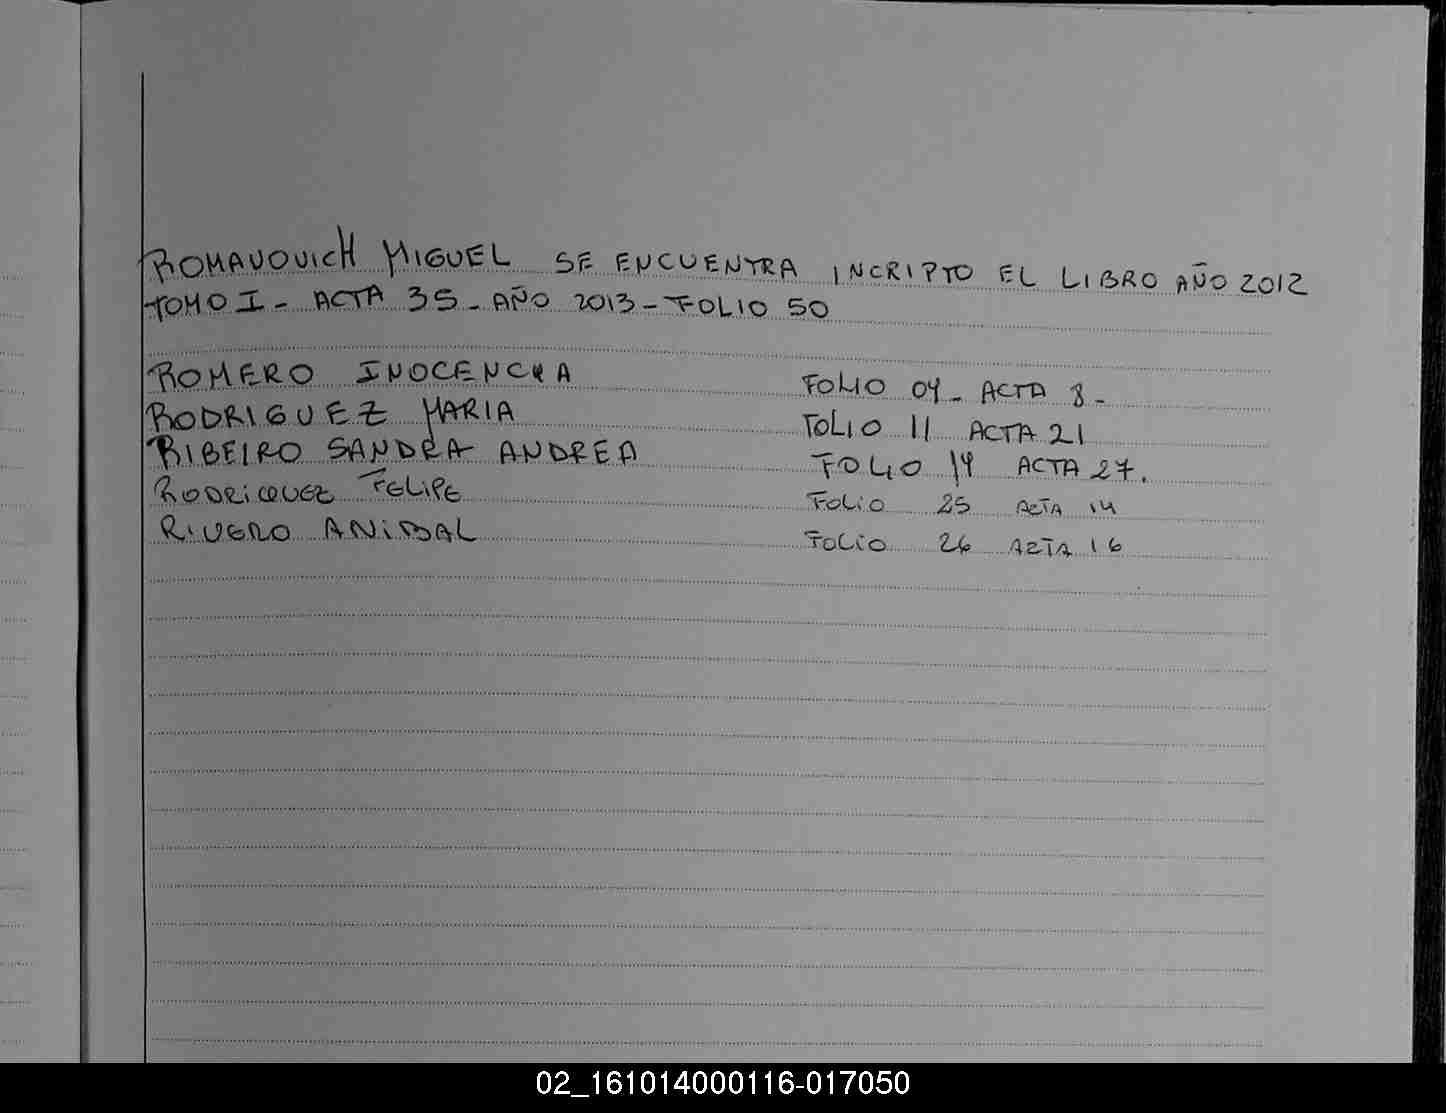 ROMANOVICH MIGUEL SE ENCUENTRA INCRIPTO EL LIBRO AÑO 2012
TOMO I - ACTA 35 - AÑO 2013 - FOLIO 50
ROMERO INOCENCIA FOLIO 04 - ACTA 8 -
RODRIGUEZ MARIA FOLIO 11 ACTA 21
RIBEIRO SANDRA ANDREA FOLIO 14 ACTA 27.
RODRIGUEZ FELIPE FOLIO 25 ACTA 14
RIVERO ANIBAL FOLIO 26 ACTA 16
02_161014000116-017050